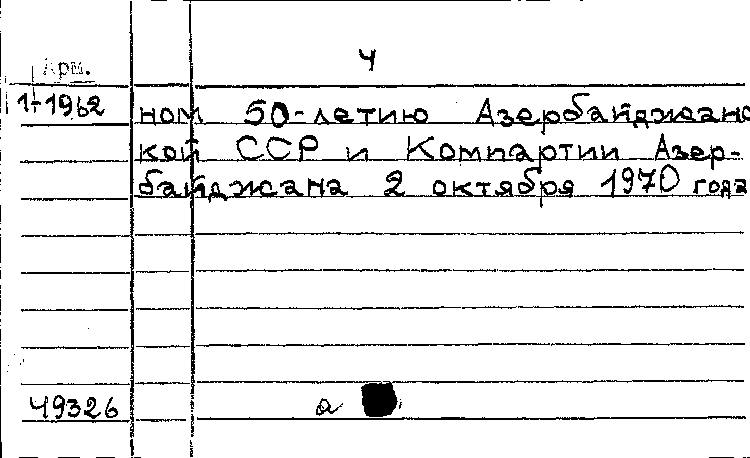 4
Арм.
1-1962
ном 50-летию Азербайджанс
кой ССР и Компартии Азер-
байджана 2 октября 1970 года
49326 а